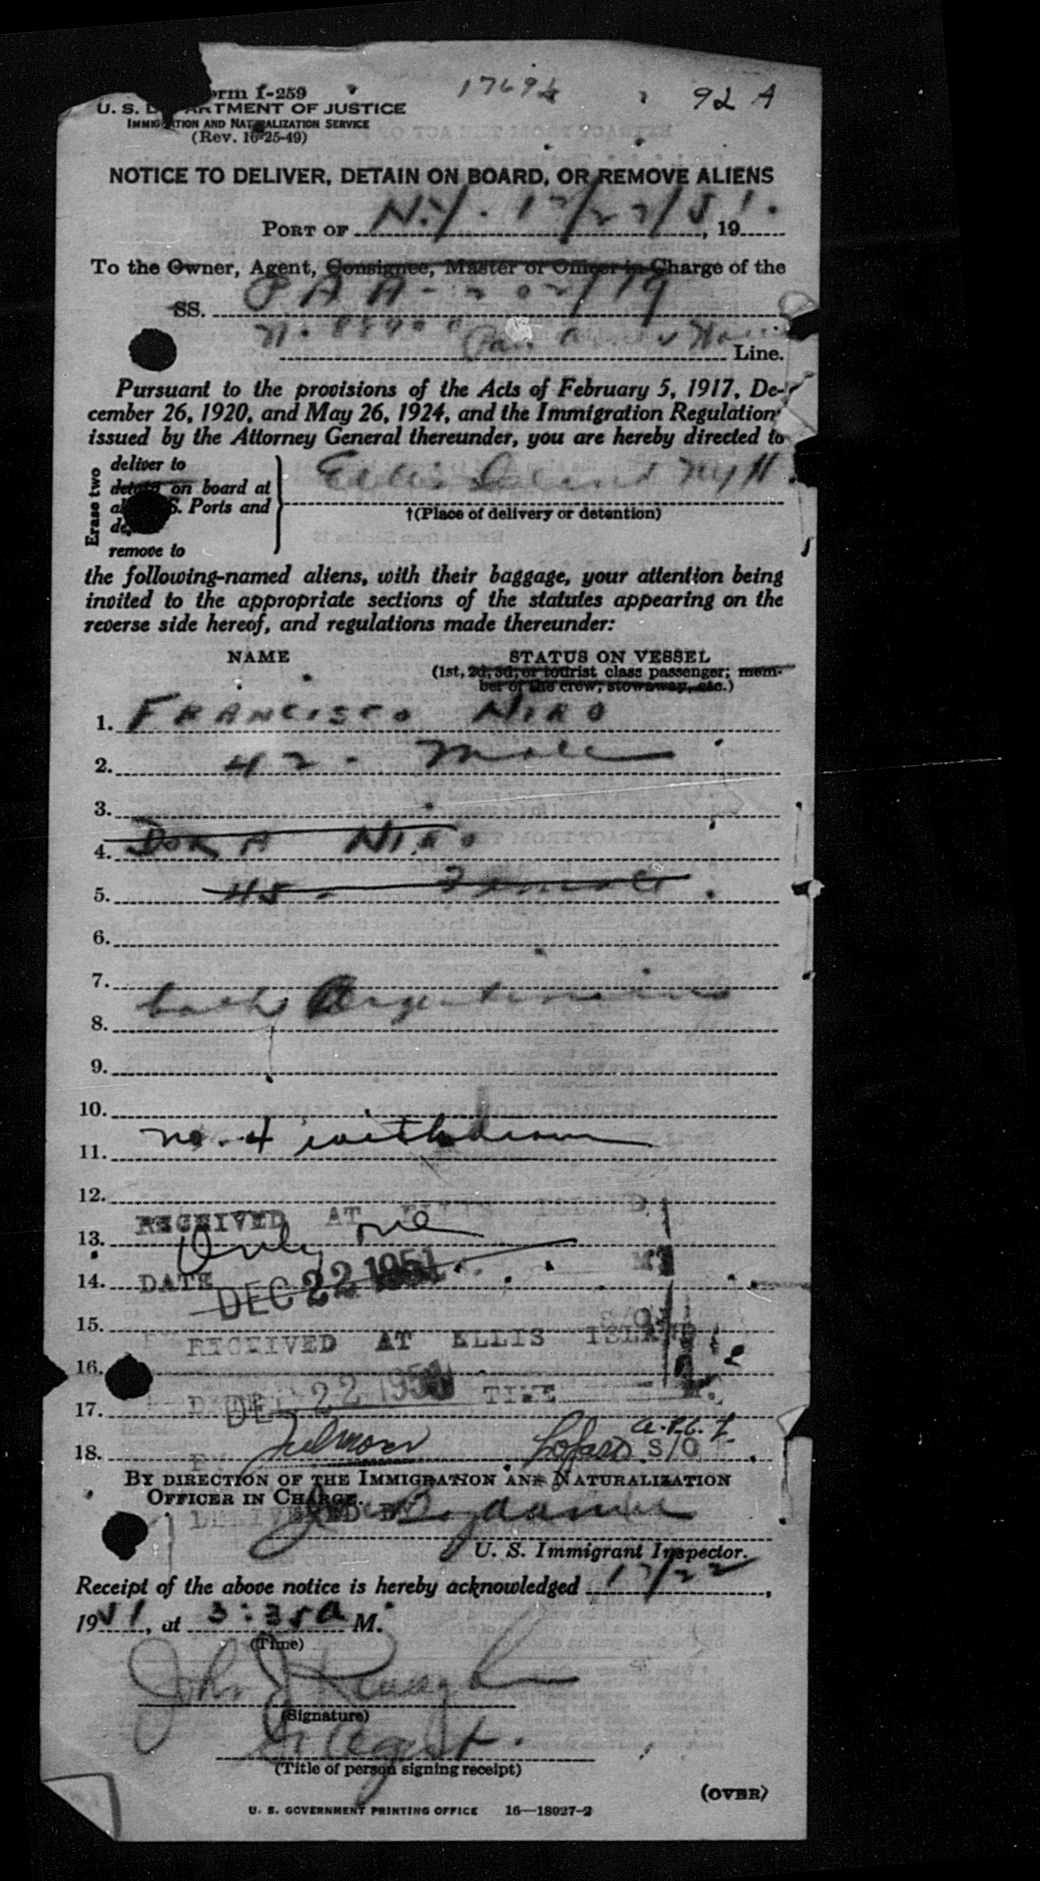 Form I-259
17694
92 A
U. S. DEPARTMENT OF JUSTICE
IMMIGRATION AND NATURALIZATION SERVICE
(Rev. 10-25-49)
NOTICE TO DELIVER, DETAIN ON BOARD, OR REMOVE ALIENS
PORT OF N.Y. 12/22/51., 19
To the Owner, Agent, Consignee, Master or Officer in Charge of the
SS. PAA - 202/19
N. Line.
Pursuant to the provisions of the Acts of February 5, 1917, De-
cember 26, 1920, and May 26, 1924, and the Immigration Regulation
issued by the Attorney General thereunder, you are hereby directed to
Erase two
deliver to
detain on board at
all U.S. Ports and
remove to
Ellis Island NYH
†(Place of delivery or detention)
the following-named aliens, with their baggage, your attention being
invited to the appropriate sections of the statutes appearing on the
reverse side hereof, and regulations made thereunder:
NAME STATUS ON VESSEL
(1st, 2d, 3d, or tourist class passenger; mem-
ber of the crew, stowaway, etc.)
1. FRANCISCO NIRO
2. 42 - Male
3.
4. DORA NIRO
5. 45 - Female
6.
7.
both Argentinians
8.
9.
10.
11. no. 4 withdrawn
12.
RECEIVED AT ELLIS ISLAND
13. Only one
14. DATE DEC 22 1951 M.
15.
RECEIVED AT ELLIS ISLAND
16.
DEC 22 1951 TIME M.
17.
18. S/O
BY DIRECTION OF THE IMMIGRATION AND NATURALIZATION
OFFICER IN CHARGE.
DELIVERED BY
U. S. Immigrant Inspector.
Receipt of the above notice is hereby acknowledged 12/22,
1951, at 3:35 A M.
(Time)
John J
(Signature)
Agent.
(Title of person signing receipt)
(OVER)
U. S. GOVERNMENT PRINTING OFFICE 16—18027-2